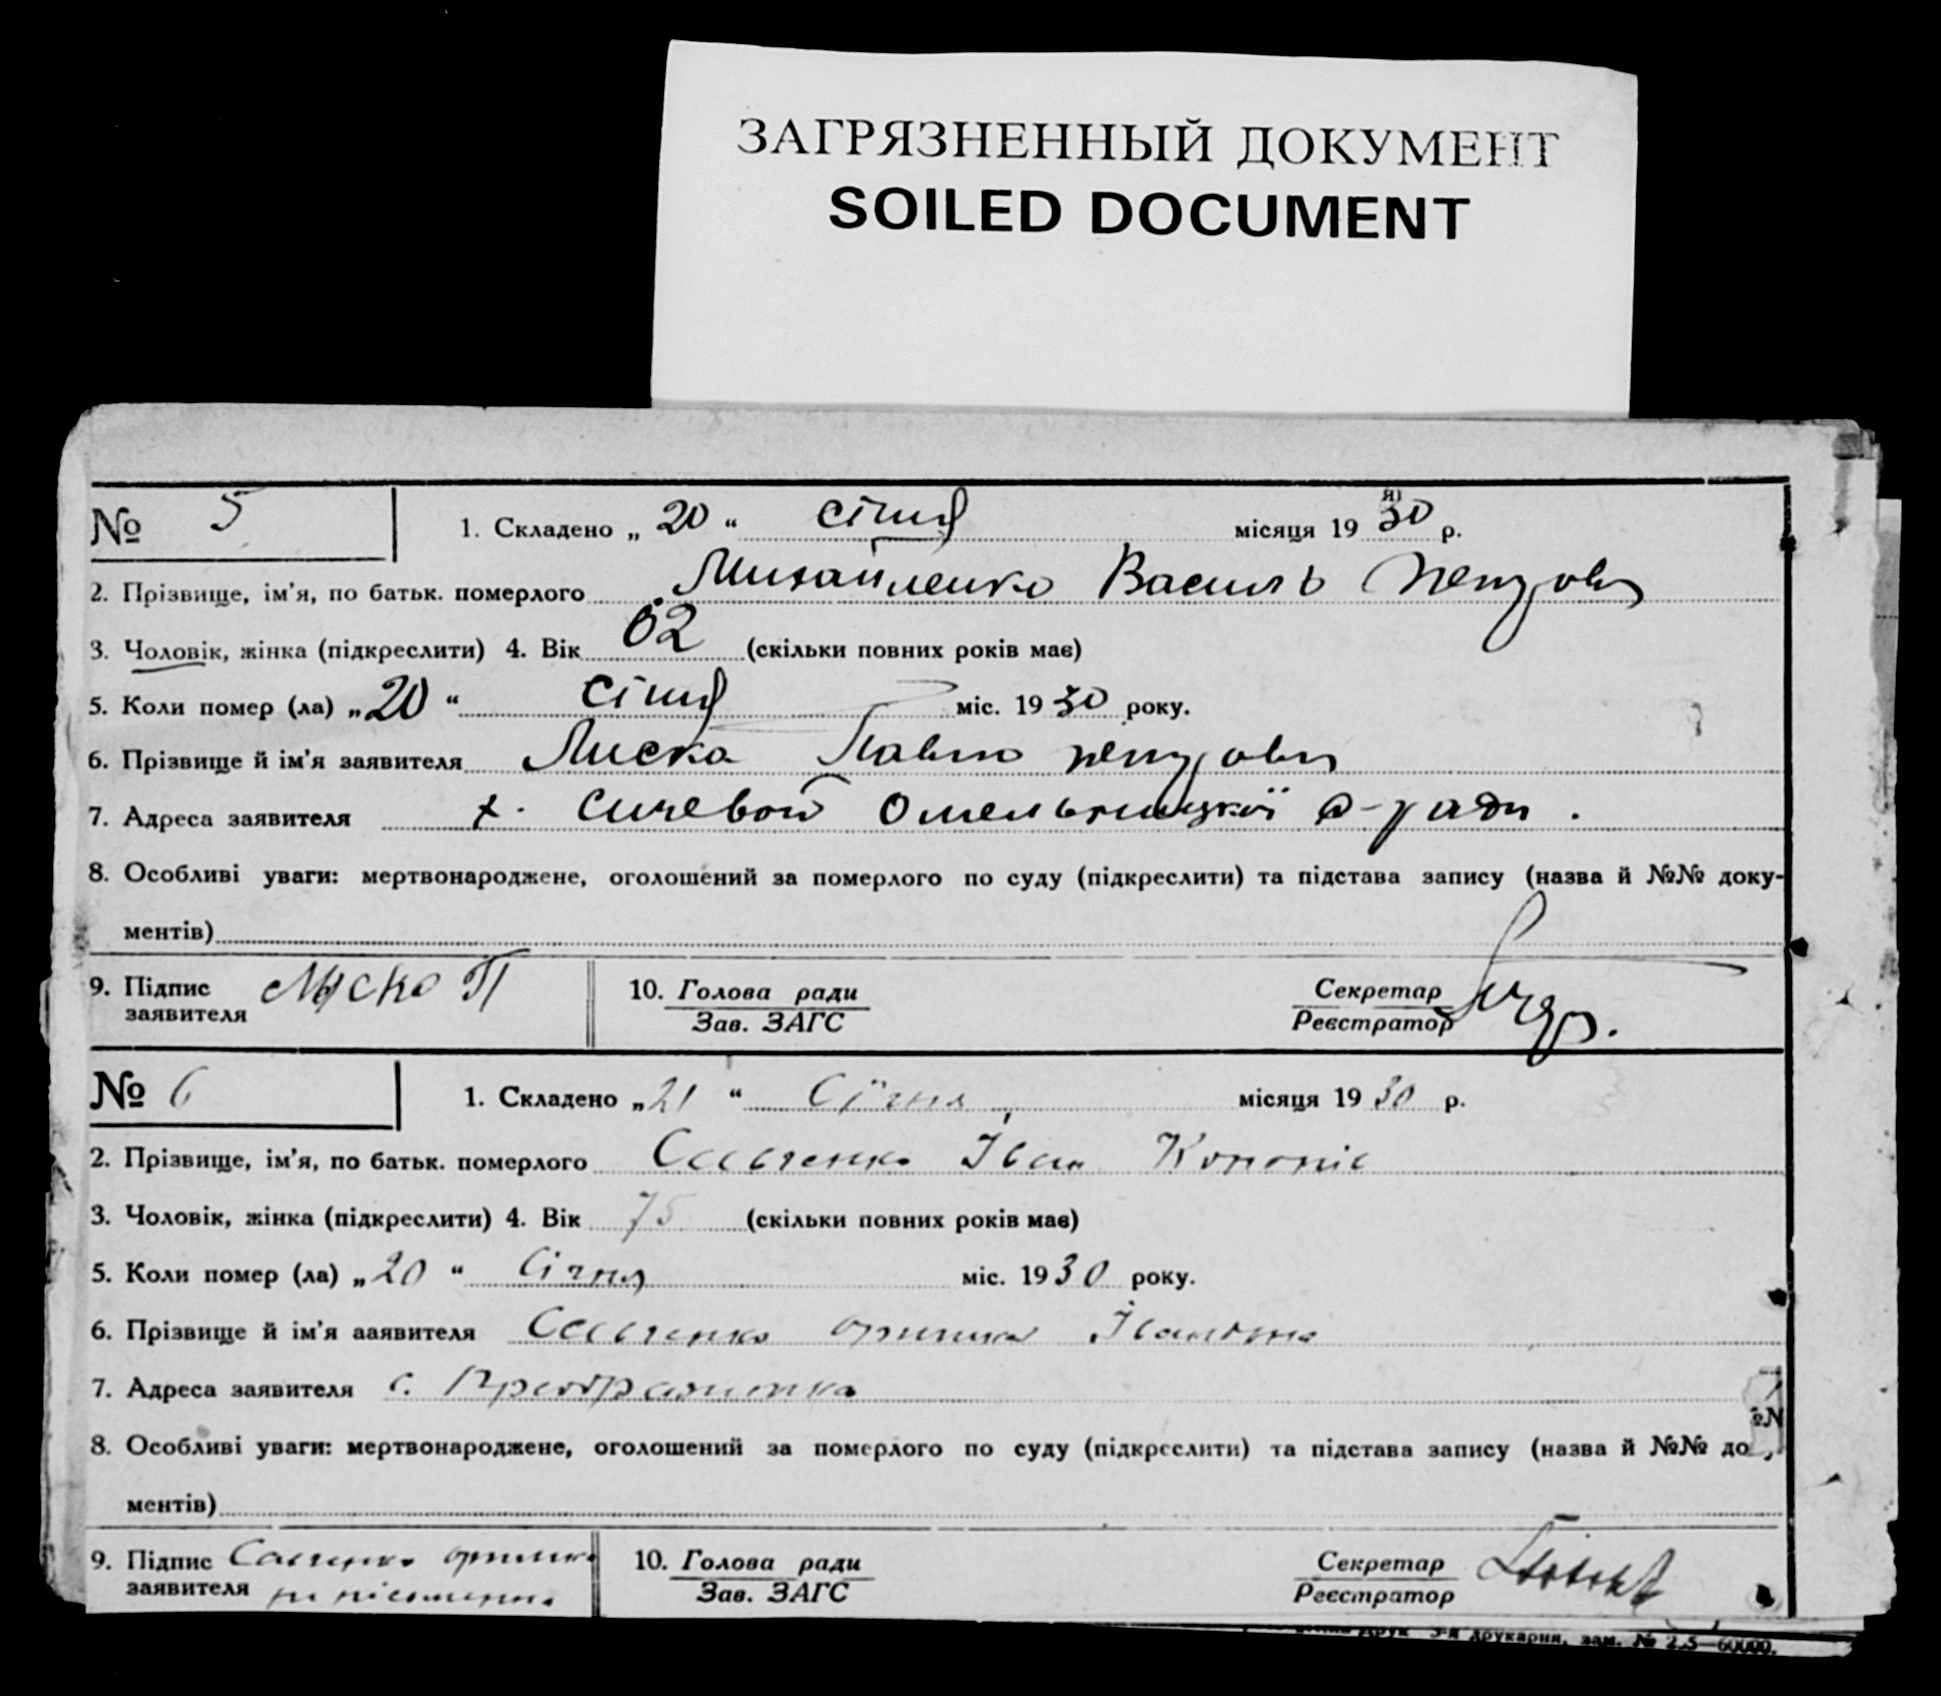 ЗАГРЯЗНЕННЫЙ ДОКУМЕНТ
SOILED DOCUMENT
№ 5 1. Складено „ 20 “ січня місяця 19 30 р.
2. Прізвище, ім'я, по батьк. померлого Михайленко Василь Петрович
3. Чоловік, жінка (підкреслити) 4. Вік 62 (скільки повних років має)
5. Коли помер (ла) „ 20 “ січня міс. 19 30 року.
6. Прізвище й ім'я заявителя Лиска Павло Петрович
7. Адреса заявителя х. Омельницкої с-ради .
8. Особливі уваги: мертвонароджене, оголошений за померлого по суду (підкреслити) та підстава запису (назва й №№ доку-
ментів)
9. Підпис заявителя П 10. Голова ради Зав. ЗАГС Секретар Реєстратор
№ 6 1. Складено „ 21 “ Січня місяця 19 30 р.
2. Прізвище, ім'я, по батьк. померлого Савченко Іван Кононів
3. Чоловік, жінка (підкреслити) 4. Вік 75 (скільки повних років має)
5. Коли помер (ла) „ 20 “ Січня міс. 19 30 року.
6. Прізвище й ім'яааявителя Савченко Іванівна
7. Адреса заявителя с.
8. Особливі уваги: мертвонароджене, оголошений за померлого по суду (підкреслити) та підстава запису (назва й №№ до
ментів)
9. Підпис заявителя Савченко 10. Голова ради Зав. ЗАГС Секретар Реєстратор
друкарня, зам. № 2,5—60000.